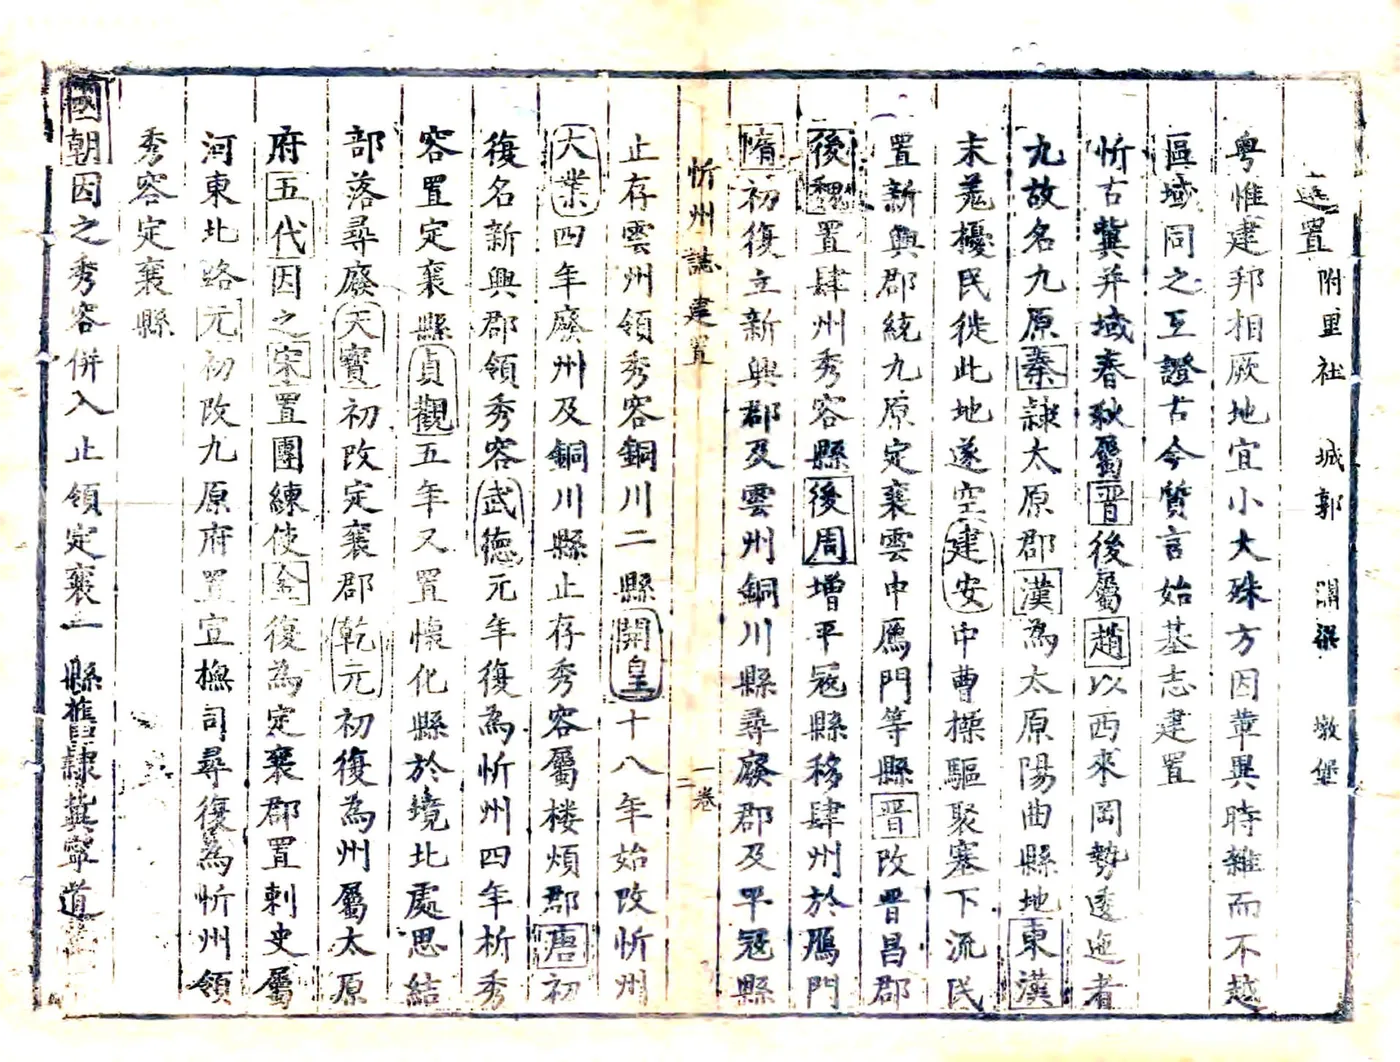 建置 附里社 城郭 關梁 墩堡
粤惟建邦相厥地宜小大殊方因革異時雜而不越
區域同之互證古今質言始基志建置
忻古冀并域春秋屬晋後屬趙以西來岡勢逶迤者
九故名九原秦隷太原郡漢為太原陽曲縣地東漢
末羗擾民徙此地遂空建安中曹操驅聚塞下流民
置新興郡統九原定襄雲中鴈門等縣晋改晋昌郡
後魏置肆州秀容縣後周增平冦縣移肆州於鴈門
隋初復立新興郡及雲州銅川縣尋廢郡及平冦縣
忻州誌 建置 卷二
止存雲州領秀容銅川二縣開皇十八年始改忻州
大業四年廢州及銅川縣止存秀容屬楼煩郡唐初
復名新興郡領秀容武德元年復為忻州四年析秀
容置定襄縣貞觀五年又置懷化縣於境北處思結
部落尋廢天寳初改定襄郡乾元初復為州屬太原
府五代因之宋置團練使金復為定襄郡置剌史屬
河東北路元初改九原府置宣撫司尋復為忻州領
秀容定襄縣
國朝因之秀容併入止領定襄一縣舊隷冀寧道